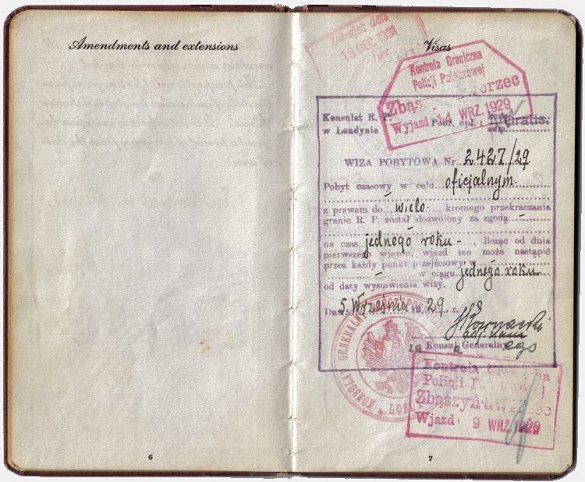 Amendments and extensions
6
Visas
19 DEC 1931
Kontrola Graniczna
Policji Państwowej
Zbąszyń Dworzec
Wyjazd WRZ. 1929
Konsulat R. P.
w Londynie
Gratis.
WIZA POBYTOWA Nr. 2427/29
Pobyt czasowy w celu oficjalnym
z prawem do wielo krotnego przekraczania
granic R. P. został dozwolony za zgodą
na czas jednego roku -, licząc od dnia
pierwszego wjazdu; wjazd ten może nastąpić
przez każdy punkt przejściowy w
w ciągu jednego roku
od daty wystawienia wizy.
Dnia 5 Września 1929 r.
Konsul Generalny
KONSULAT GENERALNY
Kontrola
Policji
Zbąszyń
Wjazd 9 WRZ. 1929
7